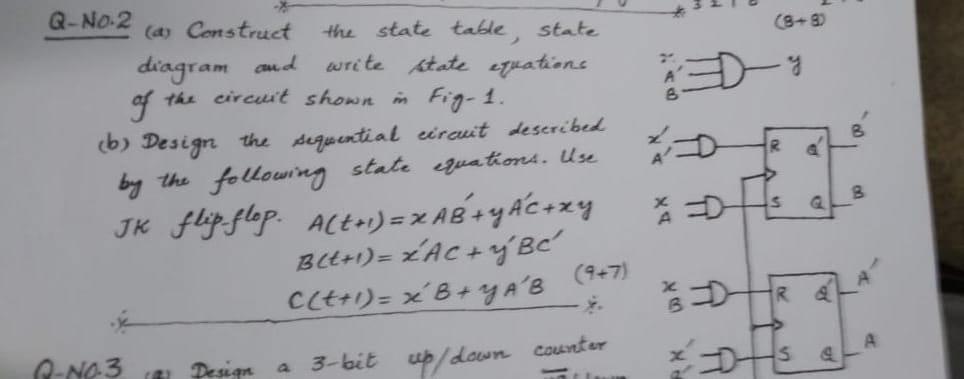 3 2 1 0
Q-No.2 (a) Construct the state table, state (8+8)
diagram and write state equations
of the circuit shown in Fig-1.
(b) Design the sequential circuit described
by the following state equations. Use
JK flip-flop. A(t+1) = x AB' + y A'C + xy
B(t+1) = x'AC + y'BC'
C(t+1) = x'B + y A'B (9+7)
Q-NO.3 Design a 3-bit up/down counter
A'
B
y
x'
A'
R Q' B'
x
A
S Q B
x
B
R Q' A'
x'
S Q A